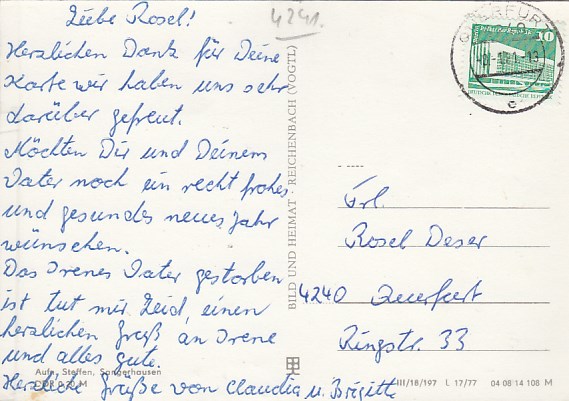 Liebe Rosel!
4241.
Herzlichen Dank für Deine
Karte wir haben uns sehr
darüber gefreut.
Möchten Dir und Deinem
Vater noch ein recht frohes
und gesundes neues Jahr
wünschen.
Das Irenes Vater gestorben
ist tut mir Leid, einen
herzlichen Gruß an Irene
und alles gute.
Herzliche Grüße von Claudia u. Brigitte
Aufn. Steffen, Sangerhausen
DDR 0,20 M
BILD UND HEIMAT · REICHENBACH (VOGTL)
10
Frl.
Rosel Deser
4240 Querfurt
Ringstr. 33
III/18/197 L 17/77 04 08 14 108 M